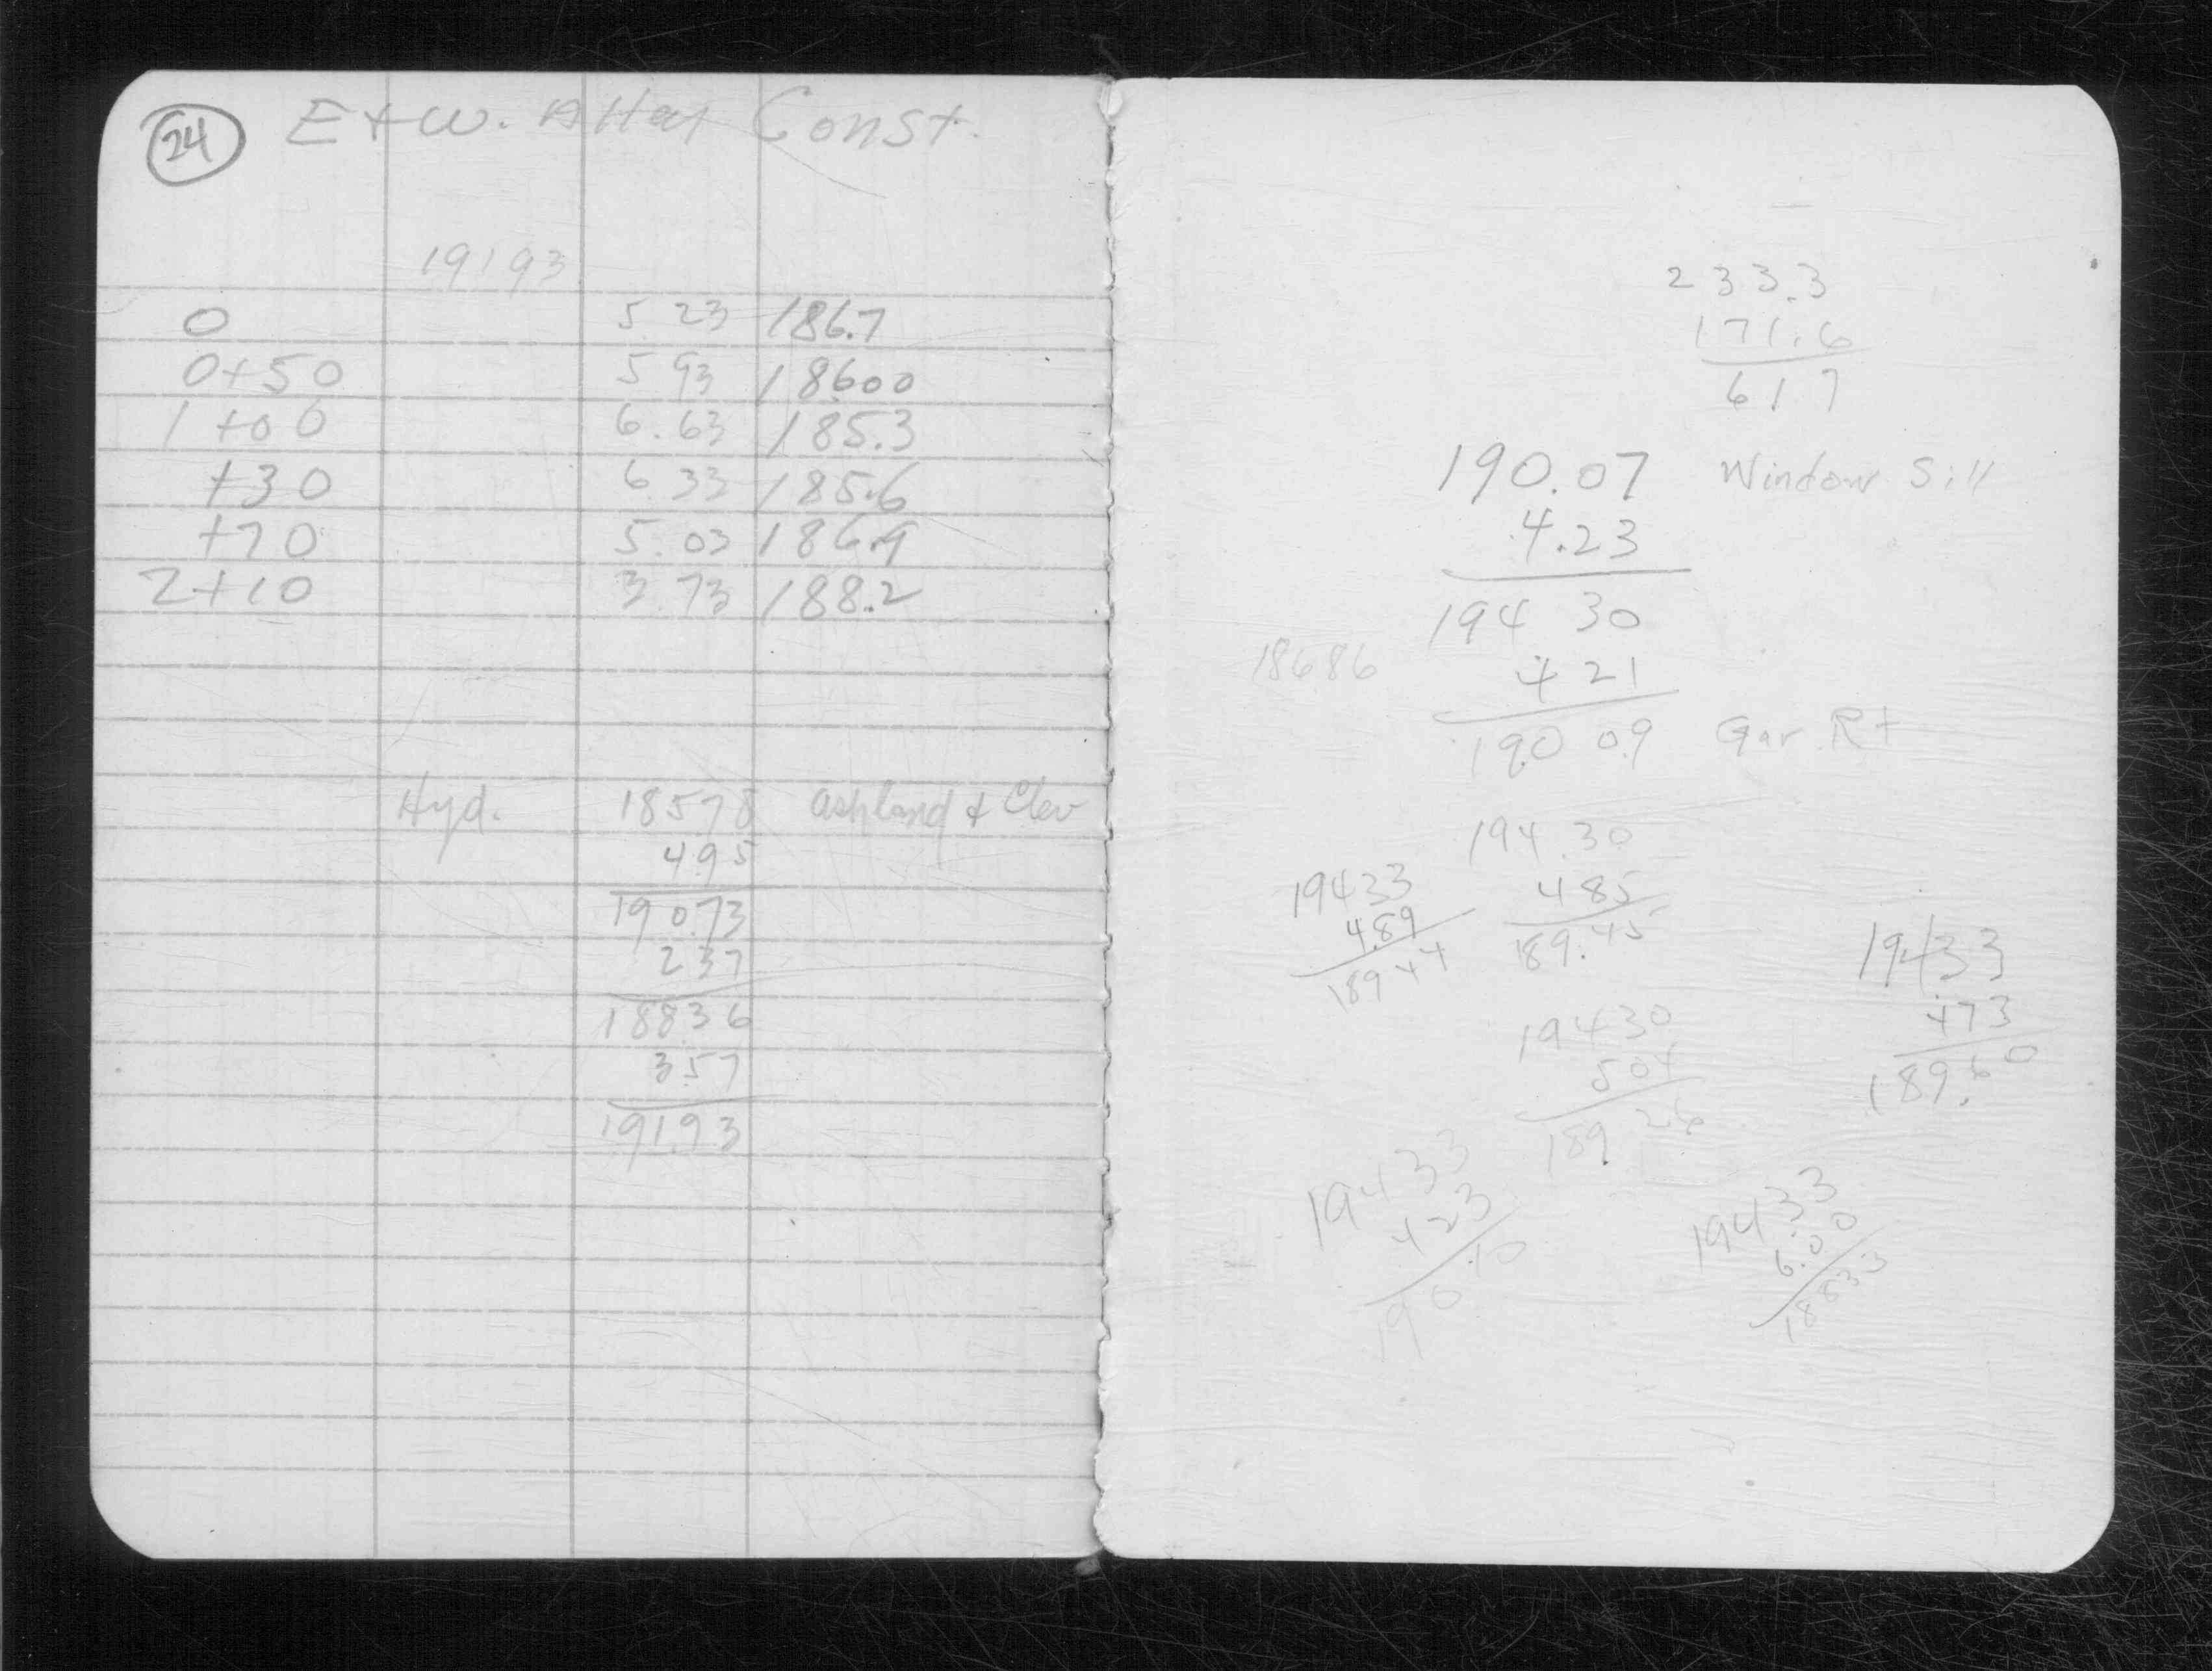 24 E+W. Alley Const.
19193
0 5.23 186.7
0+50 5 93 186.00
1+00 6.63 185.3
+30 6.33 185.6
+70 5.03 186.9
2+10 3.73 188.2
Hyd. 18578 Ashland + Clev
4.95
190.73
237
188.36
3.57
191.93
233.3
171.6
61.7
190.07 Window Sill
4.23
194 30
18686
4 21
190 09 Gar. Rt
194.30
485
189.45
19433
4.89
189 44
19433
473
189.60
19430
504
189. 26
19433
423
190.10
19433
6.00
18833